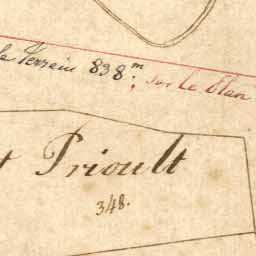 le Terrein 838.m sur le Plan
t Prioult
348.